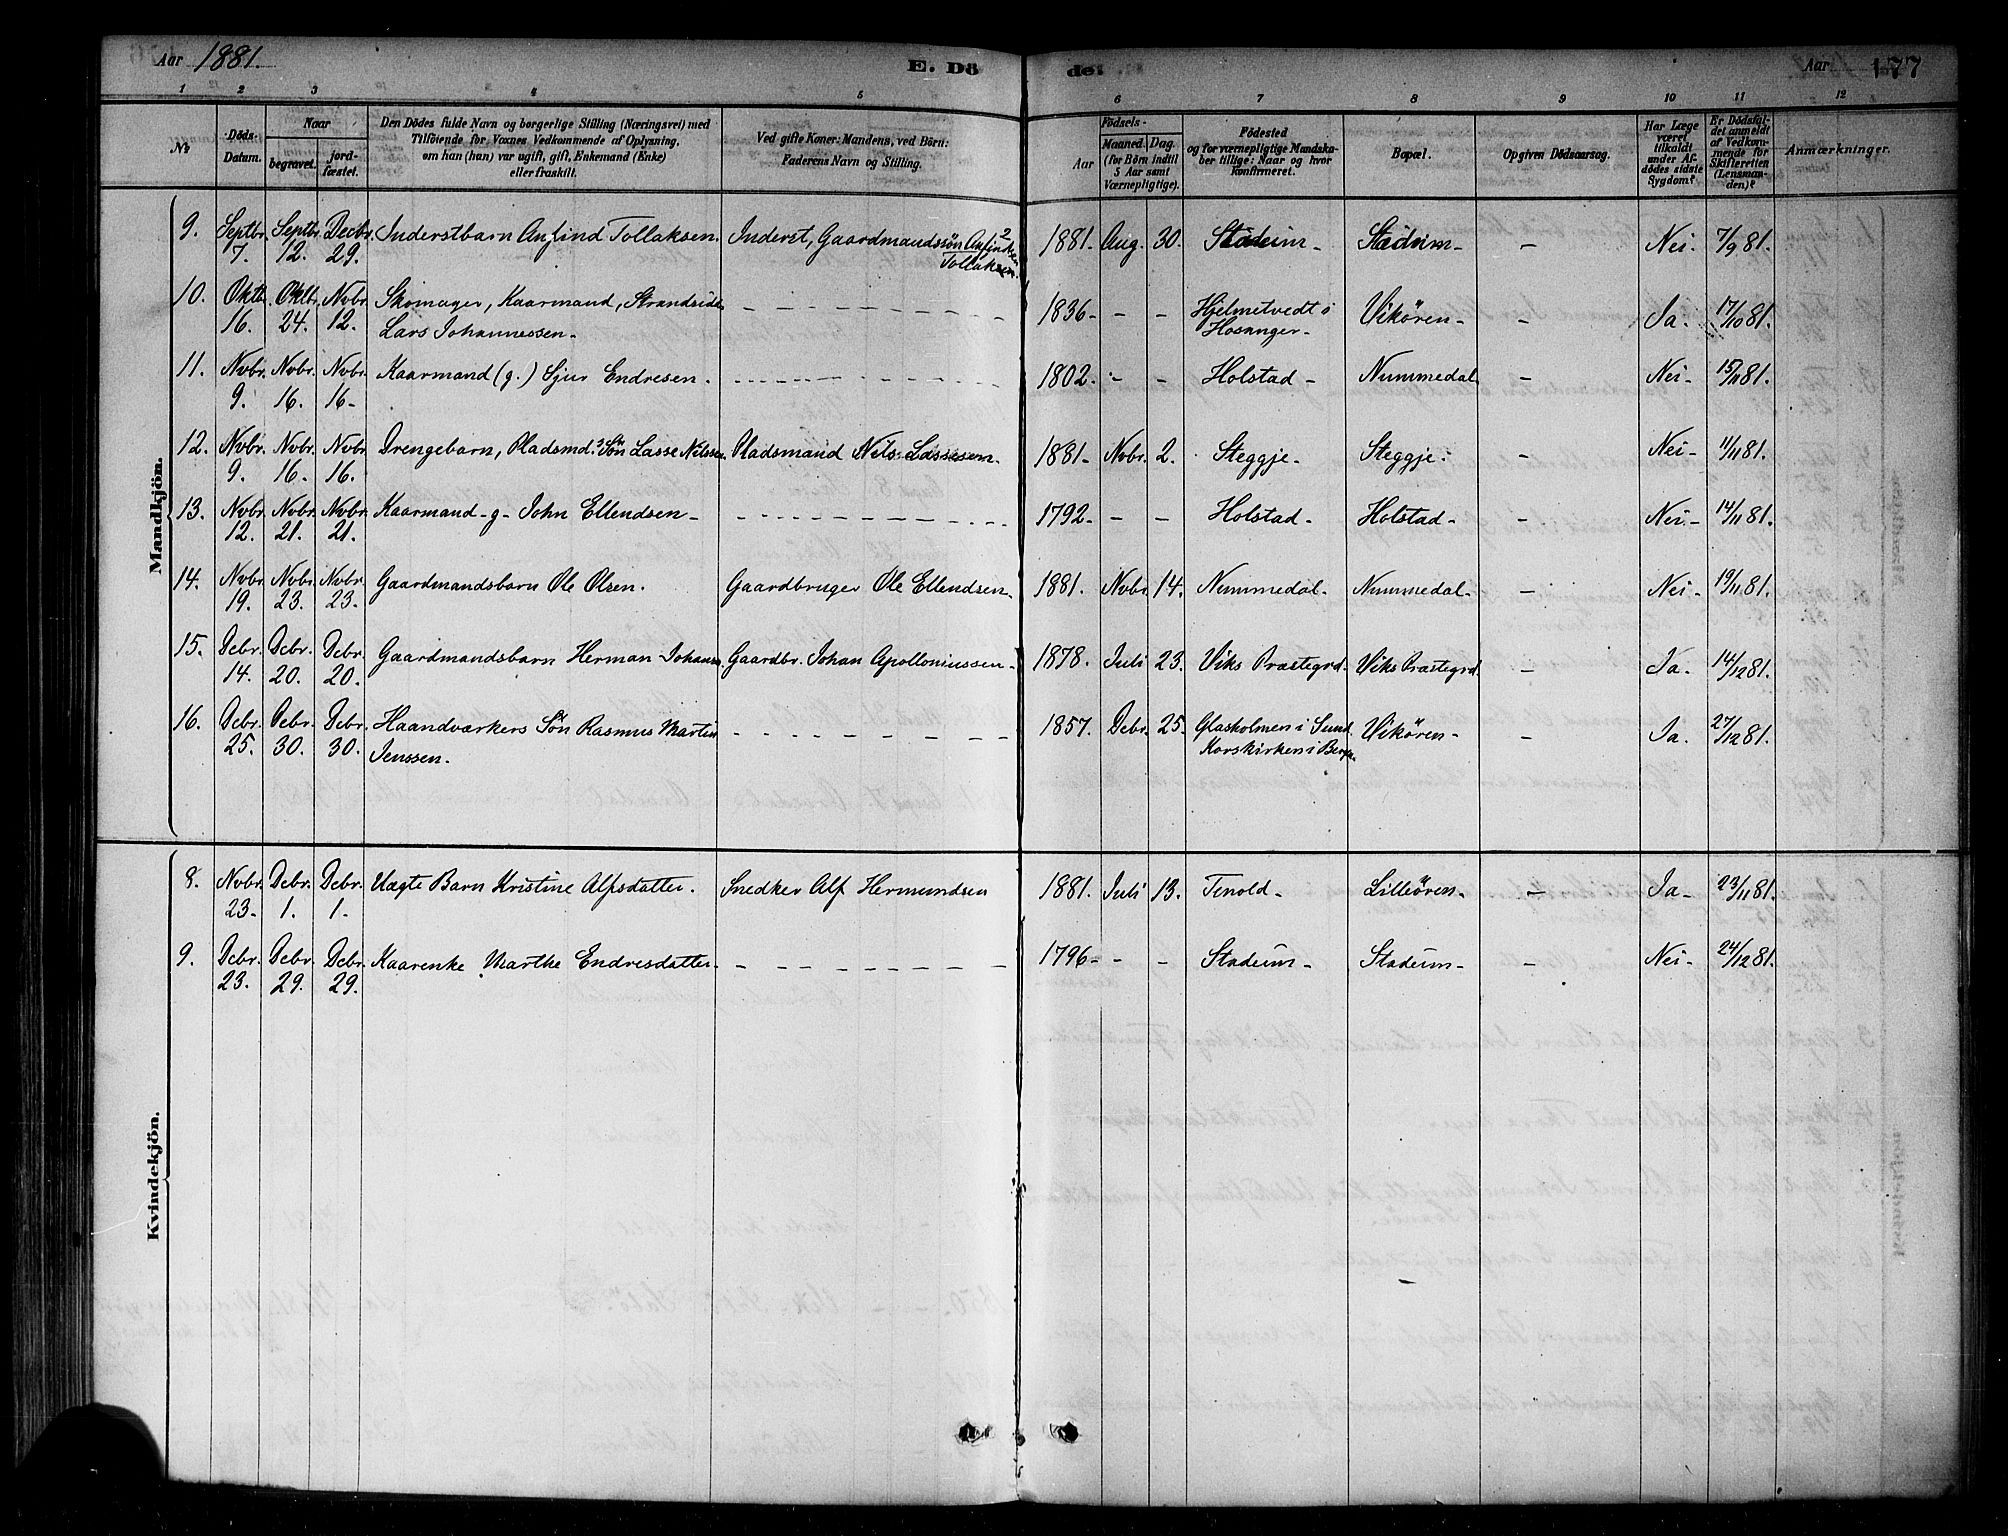 Aar 1881. E. Dö de. Aar 177
1 2 3 4 5 6 7 8 9 10 11 12
No
Döds-Datum.
Naar
begravet. jordfæstet.
Den Dödes fulde Navn og borgerlige Stilling (Næringsvei) med
Tilföiende for Voxnes Vedkommende af Oplysning,
om han (hun) var ugift, gift, Enkemand (Enke)
eller fraskilt.
Ved gifte Koner: Mandens, ved Börn:
Faderens Navn og Stilling.
Födsels-
Aar
Maaned. Dag.
(for Börn indtil
5 Aar samt
Værnepligtige).
Födested
og for værnepligtige Mandskaber tillige: Naar og hvor
konfirmeret.
Bopæl.
Opgiven Dödsaarsag.
Har Læge
været
tilkaldt
under Afdödes sidste
Sygdom?
Er Dödsfaldet anmeldt
af Vedkommende for
Skifteretten
(Lensmanden)?
Anmærkninger.
Mandkjön.
9. Septbr. 7. Septbr. 12. Decbr. 29. Inderstbarn Anfind Tollaksen. Inderst, Gaardmandssön Anfindsen 2 Tollaksen. 1881. Aug. 30. Stadeim - Stadeim - - Nei - 7/9 81.
10. Oktb. 16. Oktbr. 24. Nvbr. 12. Skomager, Kaarmand, Strandsidd.
Lars Johannessen. 1836 - - - Hjelmetvedt i
Hosanger - Vikören - - Ja. 17/10 81.
11. Nvbr. 9. Nvbr. 16. Nvbr. 16 - Kaarmand (g.) Sjur Endresen. 1802. - - Holstad - Nummedal - Nei - 15/11 81.
12. Nvbr. 9. Nvbr. 16. Nvbr. 16. Drengebarn, Pladsmds Sön Lasse Nilssen. Pladsmand Nils Lassesen. 1881 - Nvbr. 2. Steggje. Steggje. - Nei - 11/11 81.
13. Nvbr. 12. Nvbr. 21. Nvbr. 21. Kaarmand - g - John Ellendsen - 1792 - - - Holstad - Holstad - - Nei - 14/11 81.
14. Nvbr. 19. Nvbr. 23. Nvbr. 23. Gaardmandsbarn Ole Olsen. Gaardbruger Ole Ellendsen - 1881. Nvbr. 14. Nummedal - Nummedal - - Nei - 19/11 81.
15. Debr. 14. Debr. 20. Debr. 20. Gaardmandsbarn Herman Johansen Gaardbr. Johan Apolloniussen - 1878. Juli 23. Viks Præstegrd. Viks Præstegrd. - Ja. 14/12 81.
16. Debr. 25. Debr. 30. Debr. 30. Haandværkers Sön Rasmus Martin
Jenssen. 1857. Debr. 25. Glasholmen i Sund
Korskirken i Bergen Vikören - - Ja. 27/12 81.
Kvindekjön.
8. Nvbr. 23 - Debr. 1. Debr. 1. Uægte Barn Kristine Alfsdatter. Snedker Alf Hermundsen 1881. Juli 13. Tenold - Lilleören - - Ja - 23/11 81.
9. Debr. 23. Debr. 29. Debr. 29. Kaarenke Marthe Endresdatter - 1796 - - - Stadeim - Stadeim - - Nei - 24/12 81.